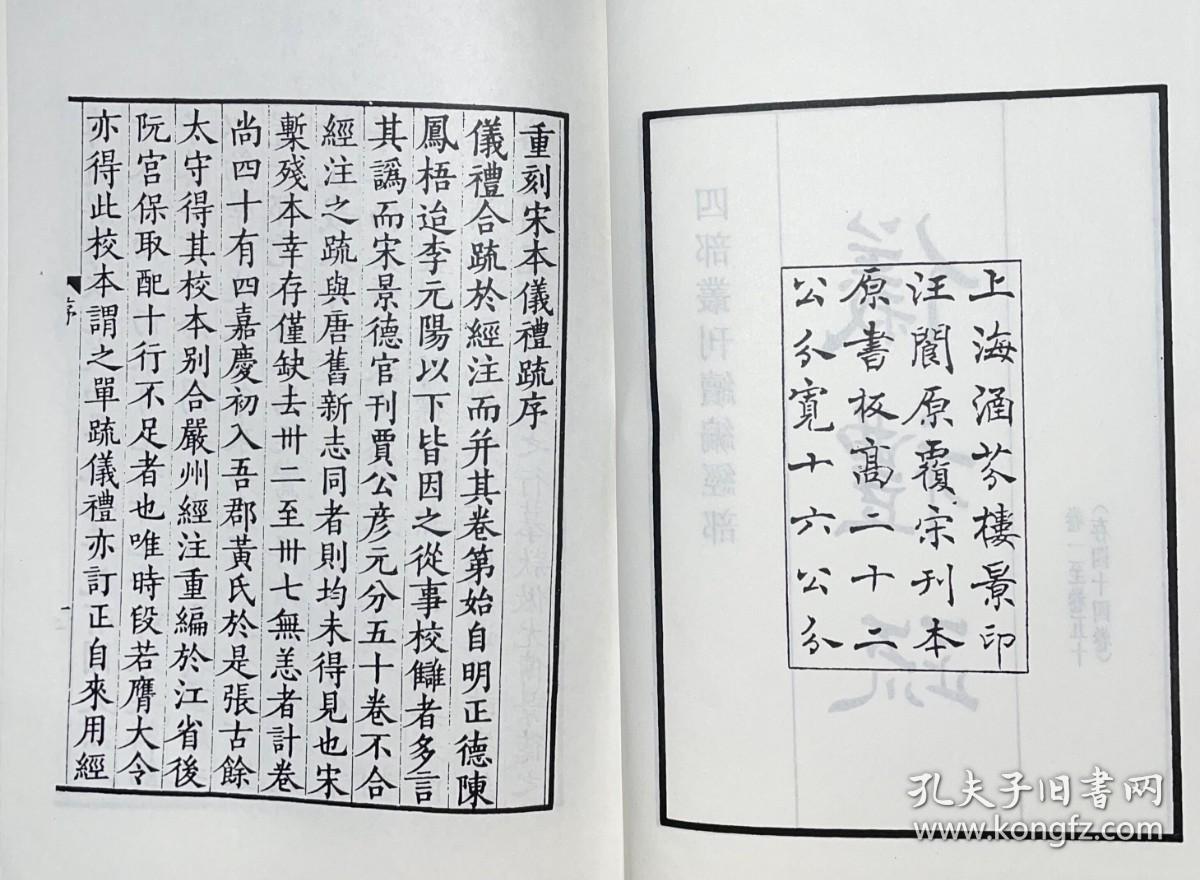 上海涵芬樓景印
汪閬原覆宋刊本
原書板高二十二
公分寬十六公分
重刻宋本儀禮疏序
儀禮合疏於經注而并其卷第始自明正德陳
鳳梧迨李元陽以下皆因之從事校讎者多言
其譌而宋景德官刊賈公彥元分五十卷不合
經注之疏與唐舊新志同者則均未得見也宋
槧殘本幸存僅缺去卅二至卅七無恙者計卷
尚四十有四嘉慶初入吾郡黃氏於是張古餘
太守得其校本別合嚴州經注重編於江省後
阮宮保取配十行不足者也唯時段若膺大令
亦得此校本謂之單疏儀禮亦訂正自來用經
序
一
四部叢刊續編經部
儀禮疏
(存四十四卷)
卷一至卷五十
孔夫子旧书网
www.kongfz.com